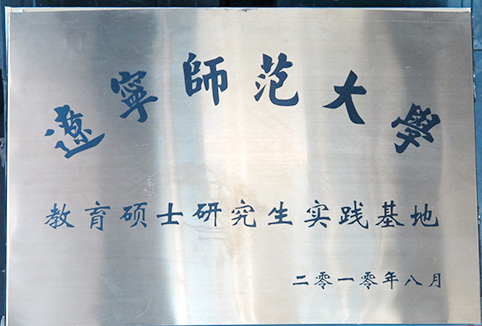 遼寧師范大學
教育硕士研究生实践基地
二零一零年八月